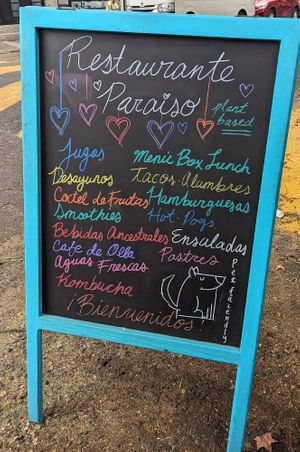 Restaurante
Paraiso
plant
based
Jugos
Desayunos
Coctel de Frutas
Smoothies
Bebidas Ancestrales
Cafe de Olla
Aguas Frescas
Kombucha
Menú Box Lunch
Tacos Alumbres
Hamburguesas
Hot-Dogs
Ensaladas
Pastres
¡Bienvenidos!
Pet friendly